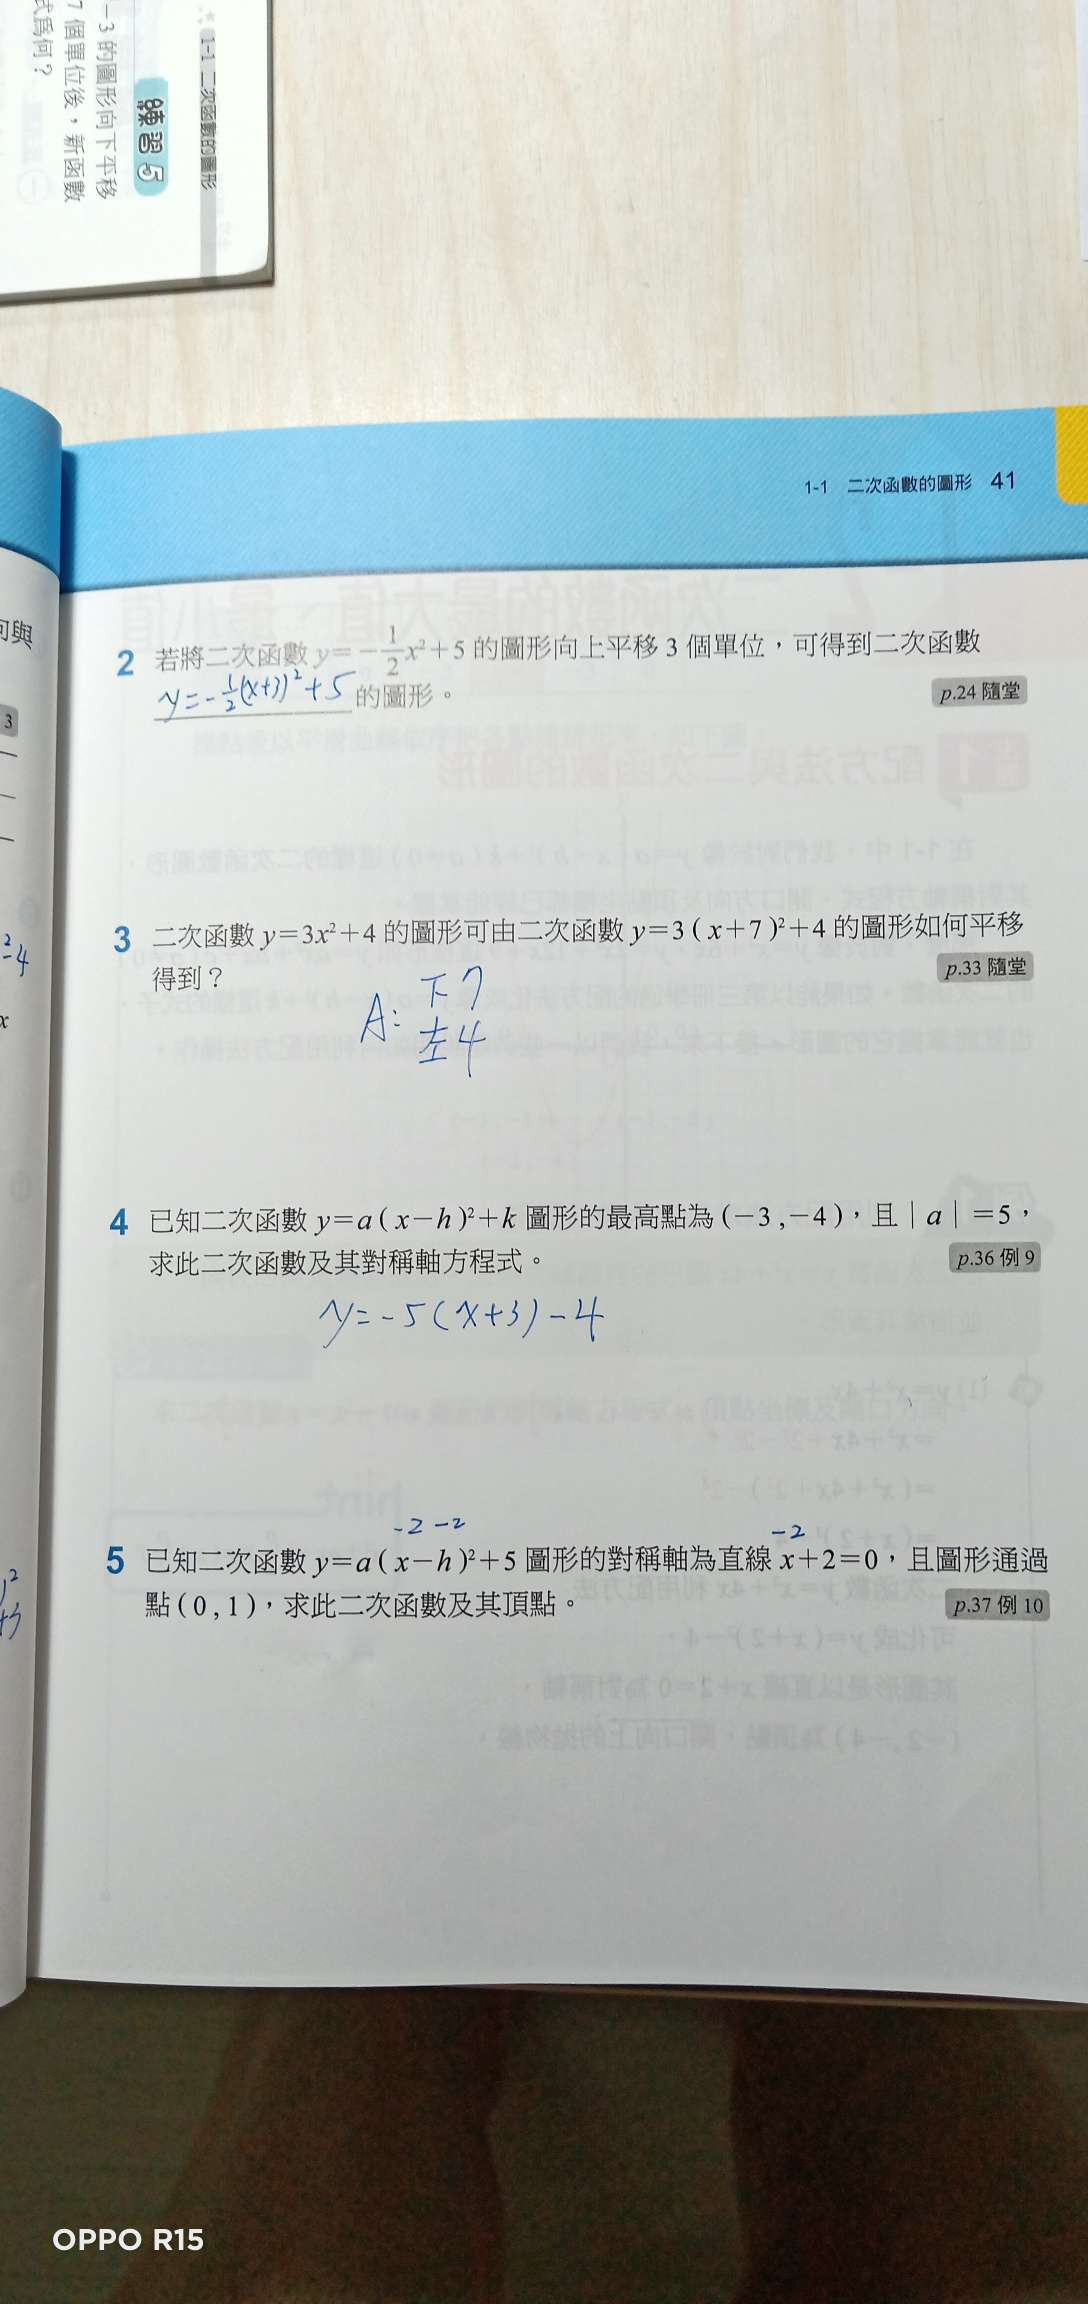 1-1 二次函數的圖形
練習 5
-3 的圖形向下平移
7 個單位後，新函數
式為何？
1-1 二次函數的圖形 41
何與
3
2 若將二次函數 y=-1/2x²+5 的圖形向上平移 3 個單位，可得到二次函數
y=-1/2(x+3)²+5 的圖形。
p.24 隨堂
3 二次函數 y=3x²+4 的圖形可由二次函數 y=3(x+7)²+4 的圖形如何平移
得到？
p.33 隨堂
A: 下7
左4
4 已知二次函數 y=a(x-h)²+k 圖形的最高點為(-3,-4)，且|a|=5，
求此二次函數及其對稱軸方程式。
p.36 例 9
y=-5(x+3)-4
-2 -2 -2
5 已知二次函數 y=a(x-h)²+5 圖形的對稱軸為直線 x+2=0，且圖形通過
點(0,1)，求此二次函數及其頂點。
p.37 例 10
OPPO R15